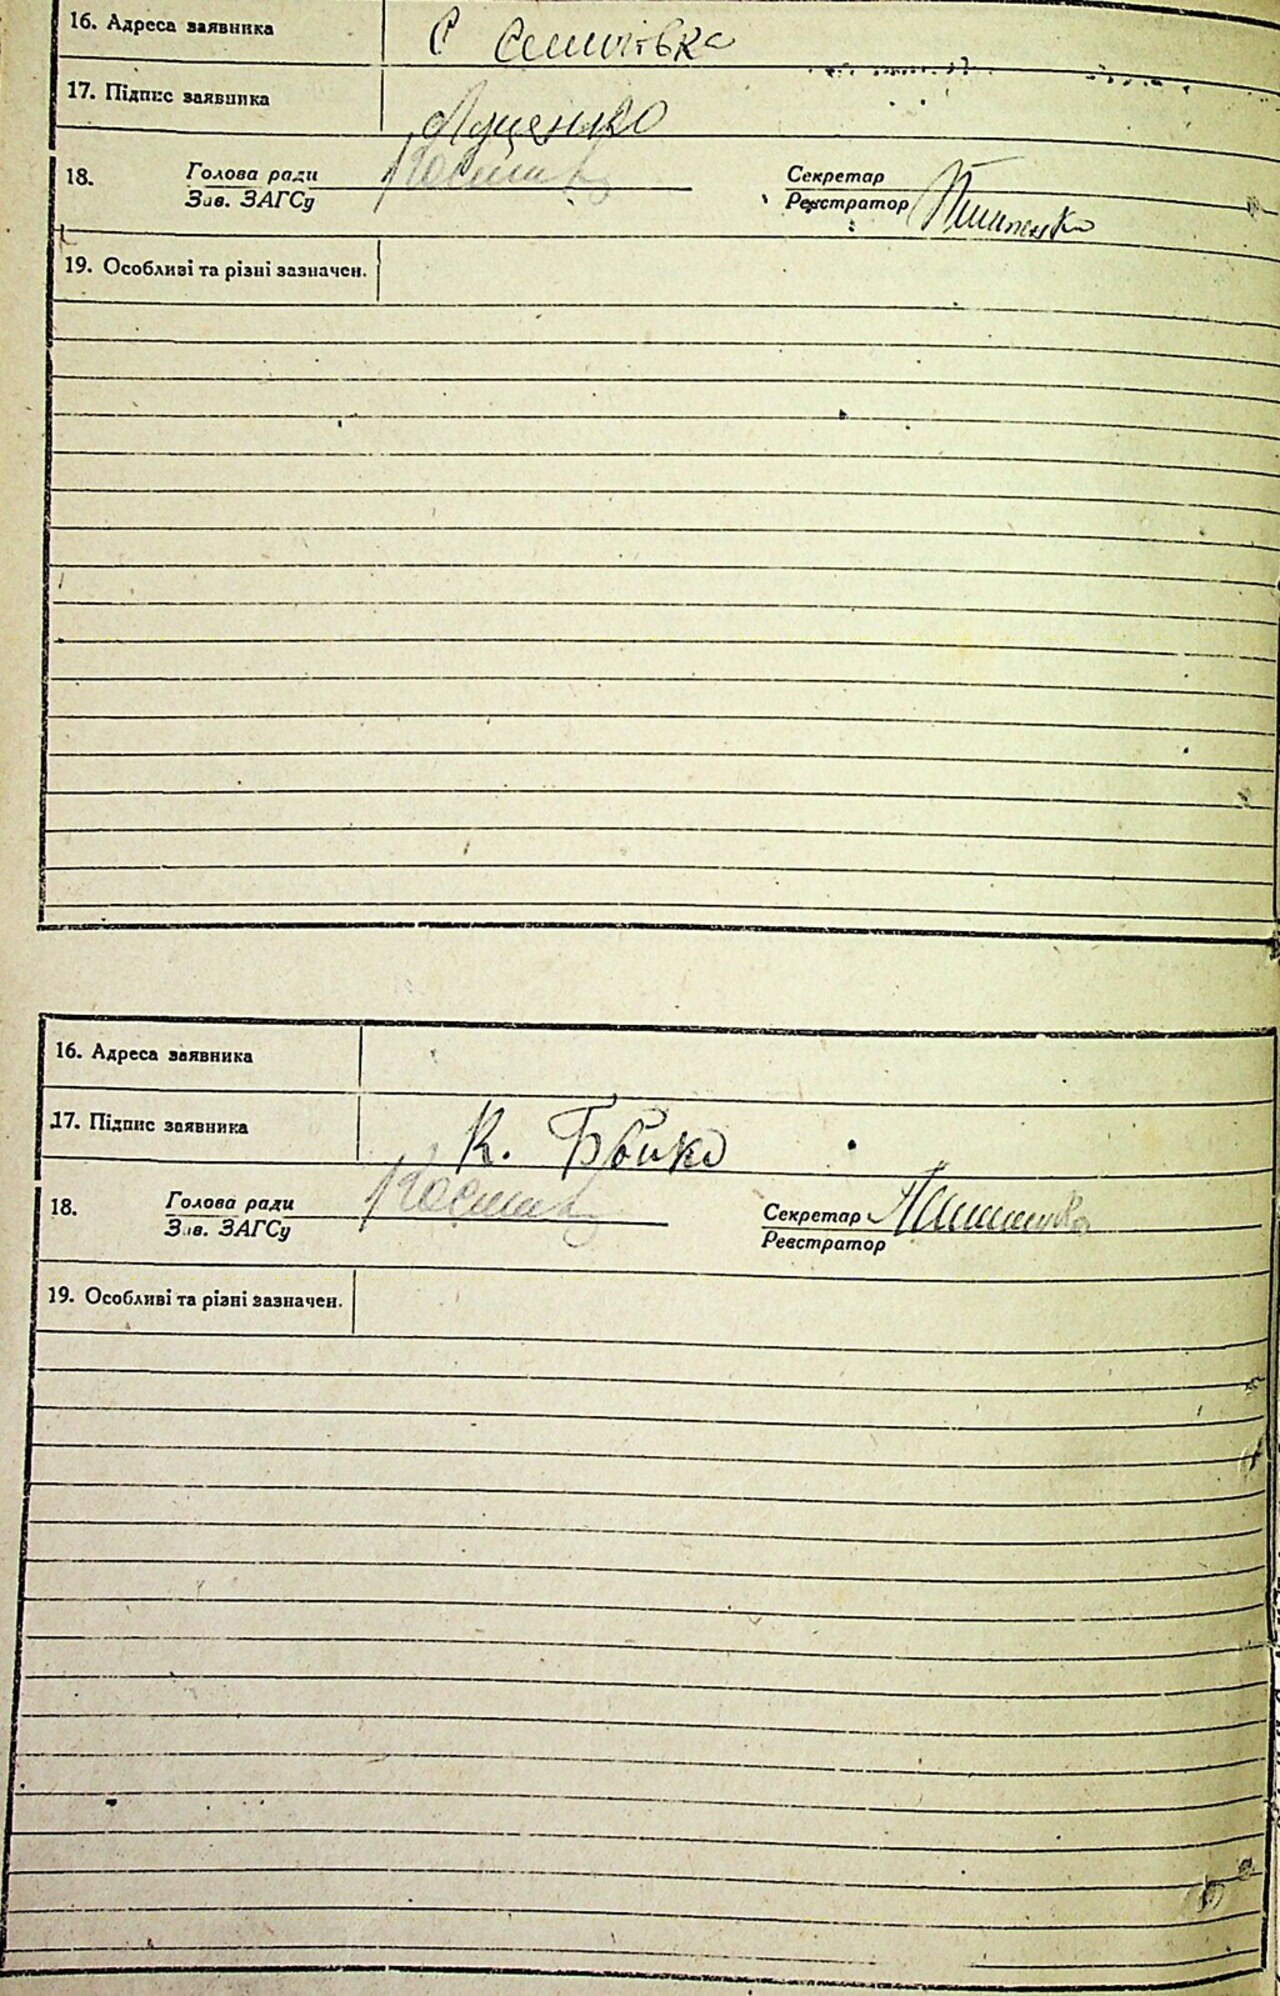 16. Адреса заявника С
17. Підпис заявника Луценко
18. Голова ради Секретар
Зав. ЗАГСу Реєстратор
19. Особливі та різні зазначен.
16. Адреса заявника
17. Підпис заявника К. Бойко
18. Голова ради Секретар
Зав. ЗАГСу Реєстратор
19. Особливі та різні зазначен.